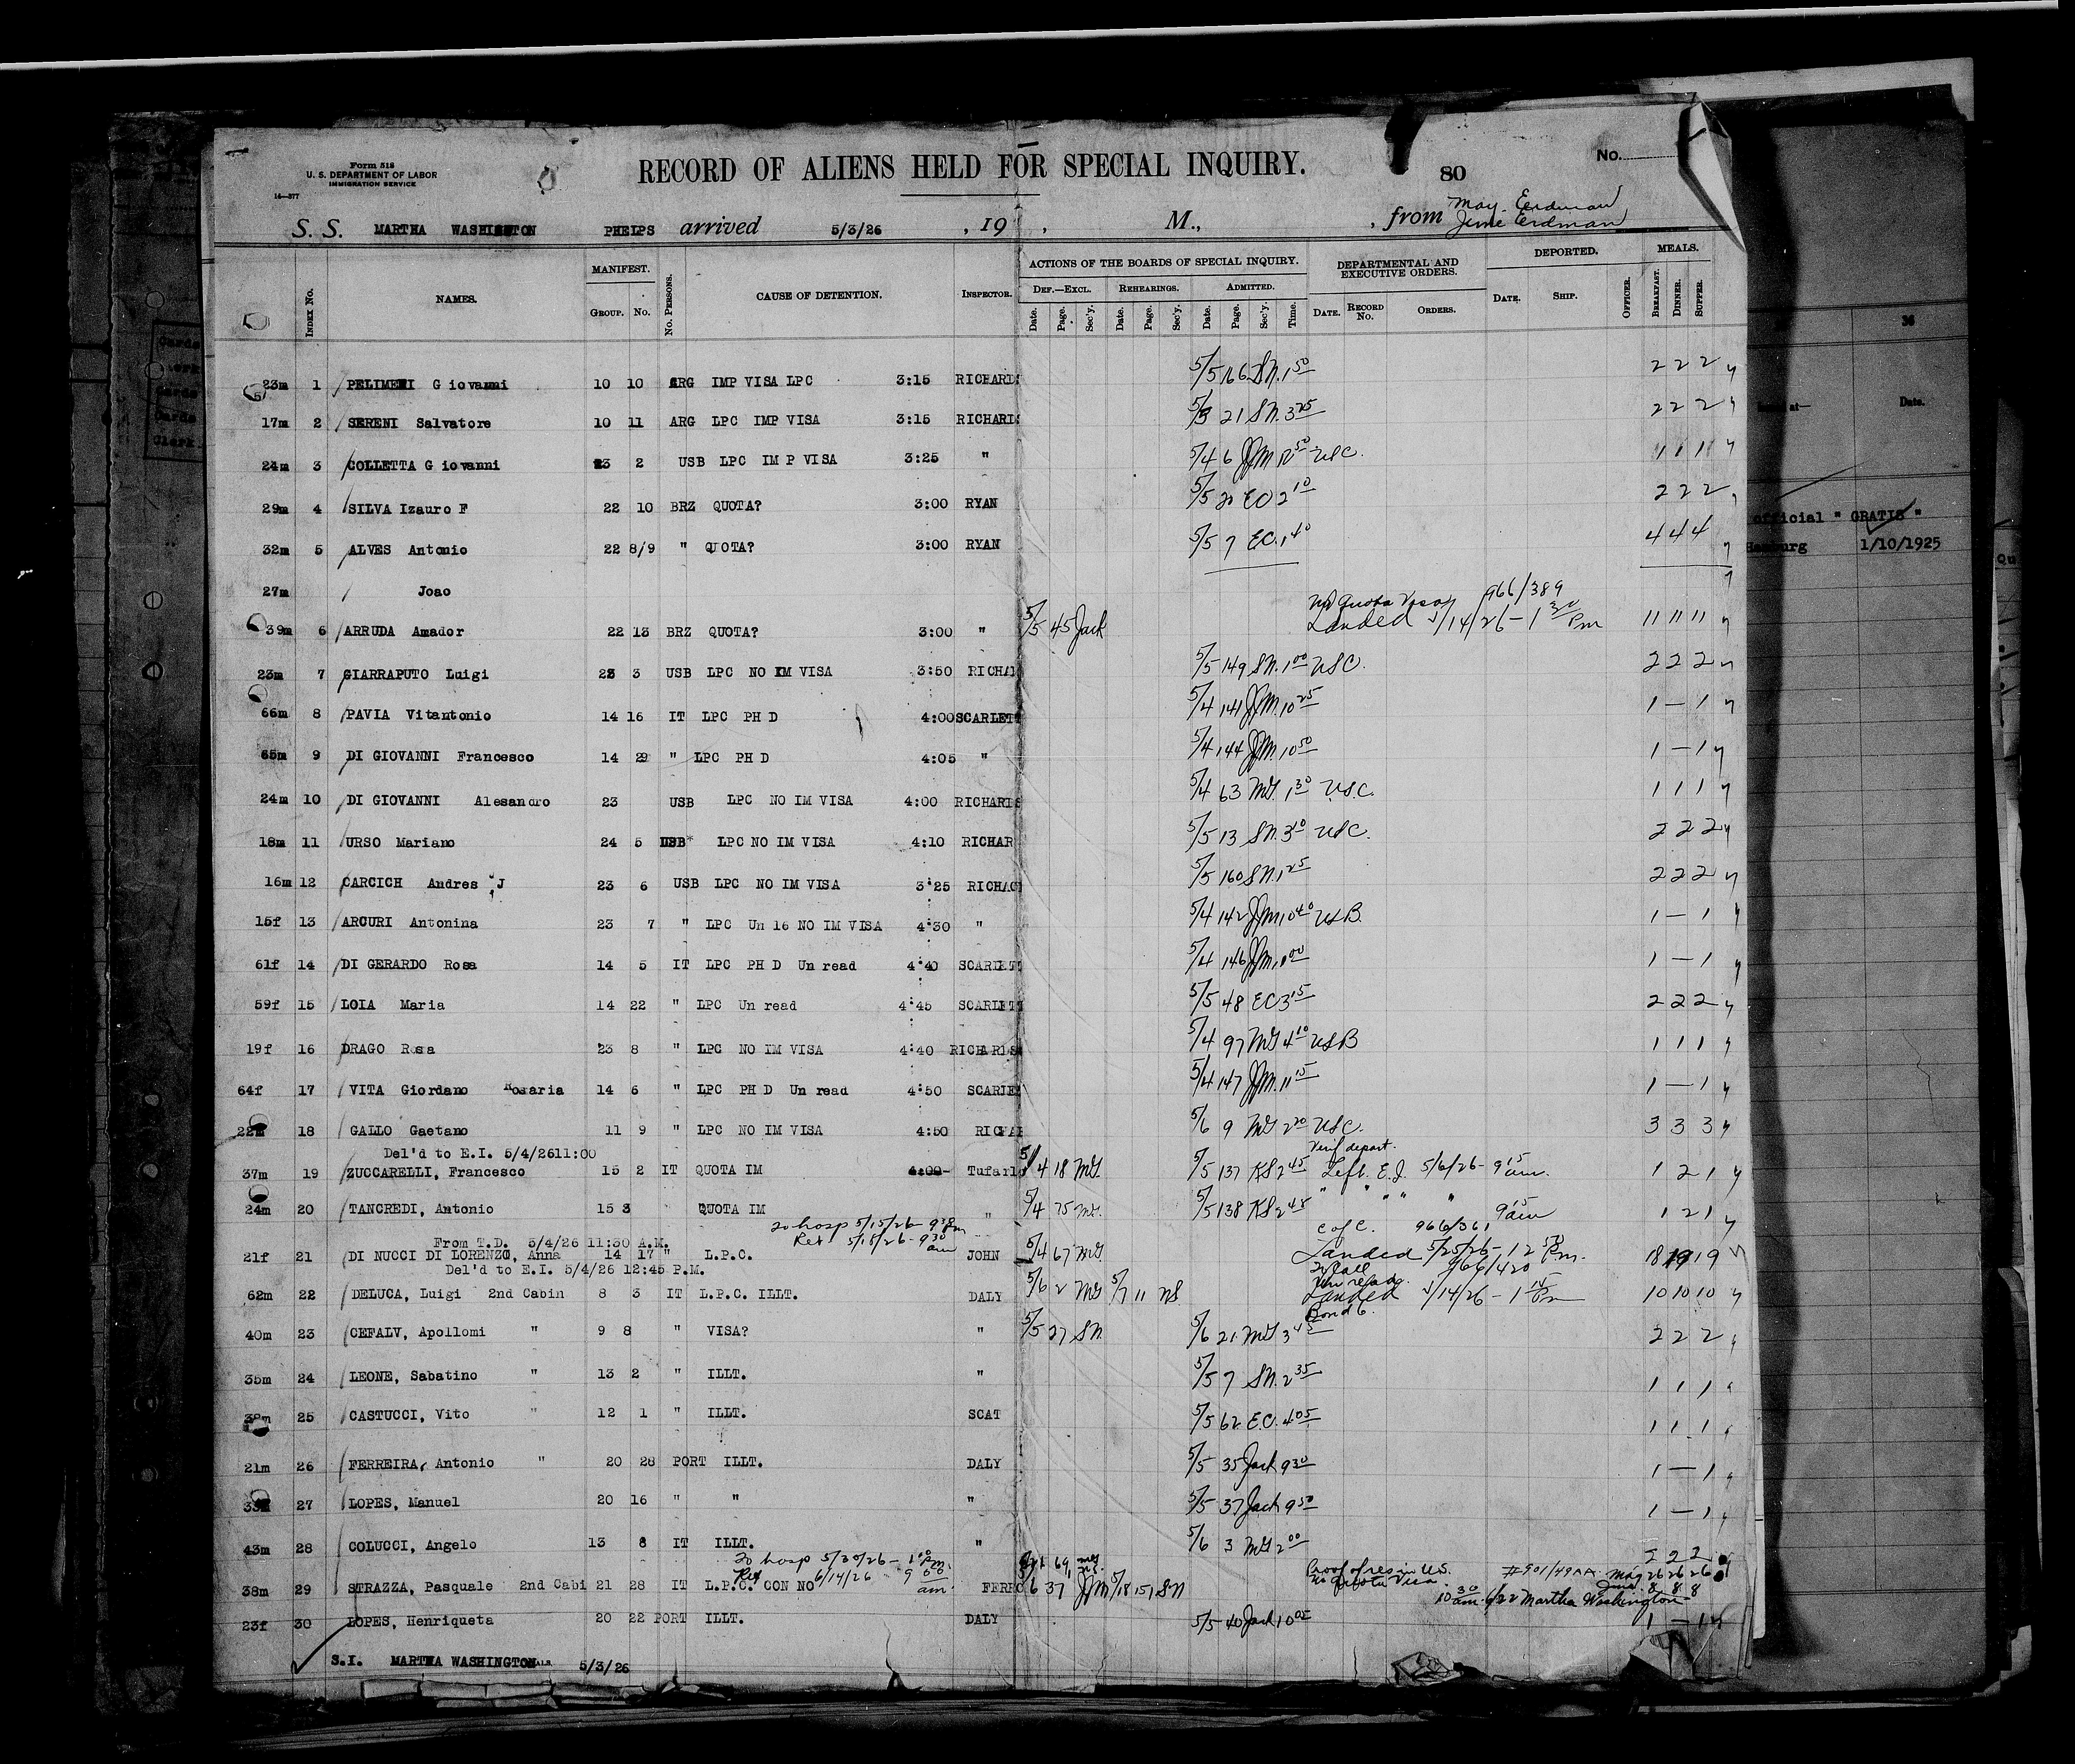 Form 518
U. S. DEPARTMENT OF LABOR
IMMIGRATION SERVICE
14—877
RECORD OF ALIENS HELD FOR SPECIAL INQUIRY.
80
No.
S. S. MARTHA WASHINGTON PHELPS arrived 5/3/26 , 19 , M., , from May Eerdman
June Erdman
INDEX No. NAMES. MANIFEST. GROUP. No. No. PERSONS. CAUSE OF DETENTION. INSPECTOR. ACTIONS OF THE BOARDS OF SPECIAL INQUIRY. DEF.—EXCL. Date. Page. Sec'y. REHEARINGS. Date. Page. Sec'y. ADMITTED. Date. Page. Sec'y. Time. DEPARTMENTAL AND EXECUTIVE ORDERS. DATE. RECORD No. ORDERS. DEPORTED. DATE. SHIP. OFFICER. MEALS. BREAKFAST. DINNER. SUPPER.
23m 1 PELIMENI Giovanni 10 10 ARG IMP VISA LPC 3:15 RICHARDS 5/5 166 SN. 1 50 2 2 2
17m 2 SERENI Salvatore 10 11 ARG LPC IMP VISA 3:15 RICHARDS 21 SN. 3 25 2 2 2
24m 3 COLLETTA Giovanni 23 2 USB LPC IM P VISA 3:25 " 5/4 6 JJM 50 USC. 1 1 1
29m 4 SILVA Izauro F 22 10 BRZ QUOTA? 3:00 RYAN 5/5 EC 2 10 2 2 2
32m 5 ALVES Antonio 22 8/9 " QUOTA? 3:00 RYAN 5/5 7 EC. 1 40 4 4 4
27m Joao
No Quota Visa 966/389
39m 6 ARRUDA Amador 22 13 BRZ QUOTA? 3:00 " 5/5 45 Jack Landed 5/14/26 - 1 30 Pm 11 11 11
23m 7 GIARRAPUTO Luigi 23 3 USB LPC NO IM VISA 3:50 RICHA 5/5 149 SN. 1 00 USC. 2 2 2
66m 8 PAVIA Vitantonio 14 16 IT LPC PH D 4:00 SCARLETT 5/4 141 JJM. 10 25 1 — 1
65m 9 DI GIOVANNI Francesco 14 " LPC PH D 4:05 " 5/4 144 JJM. 10 50 1 — 1
24m 10 DI GIOVANNI Alesandro 23 USB LPC NO IM VISA 4:00 RICHARDS 5/4 63 MG. 1 30 U.S.C. 1 1 1
18m 11 URSO Mariano 24 5 USB* LPC NO IM VISA 4:10 RICHAR 5/5 13 SN. 3 10 USC. 2 2 2
16m 12 CARCICH Andres J 23 6 USB LPC NO IM VISA 3:25 RICHA 5/5 160 SN. 1 25 2 2 2
15f 13 ARCURI Antonina 23 7 " LPC Un 16 NO IM VISA 4:30 " 5/4 142 JJM 10 40 USB. 1 — 1
61f 14 DI GERARDO Rosa 14 5 IT LPC PH D Un read 4:40 SCARLETT 5/4 146 JJM. 00 1 — 1
59f 15 LOIA Maria 14 22 " LPC Un read 4:45 SCARLETT 5/5 48 EC 3 15 2 2 2
19f 16 DRAGO Rosa 23 8 " LPC NO IM VISA 4:40 RICHARDS 5/4 97 MG 4 10 USB 1 1 1
64f 17 VITA Giordano Rosaria 14 6 " LPC PH D Un read 4:50 SCARLE 5/4 147 JJM. 11 15 1 — 1
22m 18 GALLO Gaetano 11 9 " LPC NO IM VISA 4:50 RICHAR 5/6 9 MG 2 20 USC. 3 3 3
Del'd to E.I. 5/4/26 11:00 Verif depart.
37m 19 ZUCCARELLI, Francesco 15 2 IT QUOTA IM 4:00 Tufarlo 5/4 18 MG. 5/5 137 KS 2 45 Left E.I. 5/6/26 - 9 15 am. 1 2 1
24m 20 TANCREDI, Antonio 15 3 QUOTA IM " 5/4 75 MG. 5/5 138 KS 2 48 " " " " " 9 15 am 1 2 1
To hosp 5/15/26 - 9 30 Pm
Ret 5/18/26 - 9 30 am C of C. 966/361
From T.D. 5/4/26 11:50 A.M.
21f 21 DI NUCCI DI LORENZO, Anna 14 17 " L.P.C. JOHN 5/4 67 MG Landed 5/25/26 - 12 50 Pm. 18 19 19
Del'd to E.I. 5/4/26 12:45 P.M. 966/420
62m 22 DELUCA, Luigi 2nd Cabin 8 3 IT L.P.C. ILLT. DALY 5/6 2 MG 5/7 11 NS Landed 5/14/26 - 1 15 Pm 10 10 10
Bond 6.
40m 23 CEFALV, Apollomi " 9 8 " VISA? " 5/5 27 SN 5/6 21 MG 3 45 2 2 2
35m 24 LEONE, Sabatino " 13 2 " ILLT. " 5/5 7 SN. 2 35 1 1 1
38m 25 CASTUCCI, Vito " 12 1 " ILLT. SCAT 5/5 62 E.C. 4 05 1 1 1
21m 26 FERREIRA, Antonio " 20 28 PORT ILLT. DALY 5/5 35 Jack 9 30 1 — 1
33m 27 LOPES, Manuel 20 16 " " " 5/5 37 Jack 9 50 1 — 1
43m 28 COLUCCI, Angelo 13 8 IT ILLT. " 5/6 3 MG 2 00 2 2 2
To hosp 5/30/26 - 1 00 Pm.
Ret 6/14/26 9 50 am. Proof of res in U.S. #901/49 May 26 26 26
38m 29 STRAZZA, Pasquale 2nd Cabi 21 28 IT L.P.C. CON NO FERRO 6 37 JJM 5/18 151 SN No Quota Visa. June 8 8 8
10 30 am. 6/22 Martha Washington
23f 30 LOPES, Henriqueta 20 22 PORT ILLT. DALY 5/5 40 Jack 10 05 1 — 1
S.I. MARTHA WASHINGTON 5/3/26
36
at—
Date.
official " GRATIS "
Hamburg 1/10/1925
Qu
Cards
Clerk
Cards
Cards
Clerk